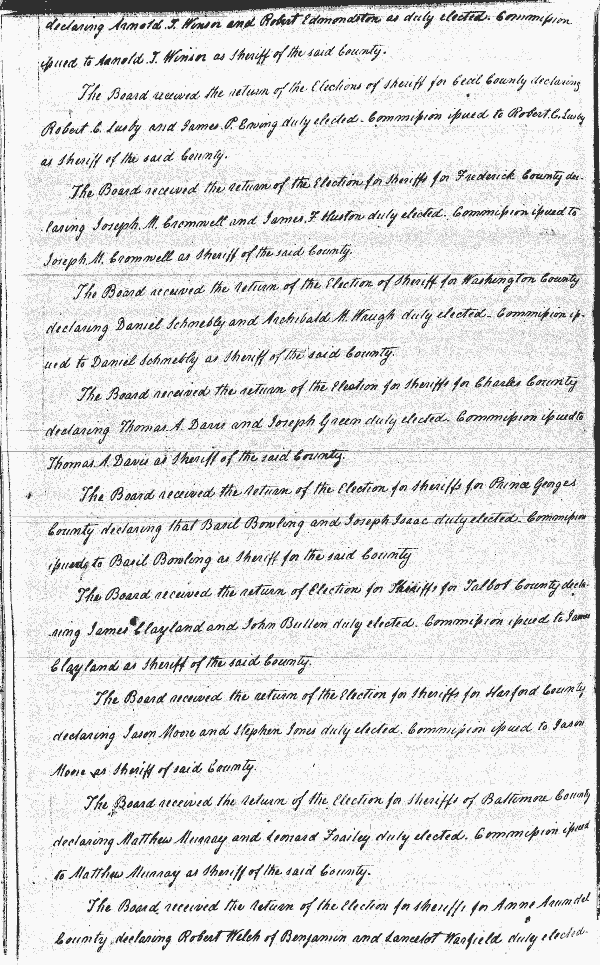 declaring Arnold T. Winsor and Robert Edmondston as duly elected. Commission
issued to Arnold T. Winsor as Sheriff of the said County.
The Board received the return of the Elections of Sheriff for Cecil County declaring
Robert C. Lusby and James P. Ewing duly elected. Commission issued to Robert C. Lusby
as Sheriff of the said County.
The Board received the return of the Election for Sheriffs for Frederick County dec-
laring Joseph M. Cromwell and James F. Huston duly elected. Commission issued to
Joseph M. Cromwell as Sheriff of the said County.
The Board received the return of the Election of Sheriff for Washington County
declaring Daniel Schnebly and Archibald M. Waugh duly elected. Commission iss-
ued to Daniel Schnebly as Sheriff of the said County.
The Board received the return of the Election for Sheriffs for Charles County
declaring Thomas A. Davis and Joseph Green duly elected. Commission issued to
Thomas A. Davis as Sheriff of the said County.
The Board received the return of the Election for Sheriffs for Prince Georges
County declaring that Basil Bowling and Joseph Isaac duly elected. Commission
issued to Basil Bowling as Sheriff for the said County
The Board received the return of Election for Sheriffs for Talbot County decla-
ring James Clayland and John Bullen duly elected. Commission issued to James
Clayland as Sheriff of the said County.
The Board received the return of the Election for Sheriffs for Harford County
declaring Jason Moore and Stephen Jones duly elected. Commission issued to Jason
Moore as Sheriff of said County.
The Board received the return of the Election for Sheriffs of Baltimore County
declaring Matthew Murray and Leonard Frailey duly elected. Commission issued
to Matthew Murray as Sheriff of the said County.
The Board received the return of the Election for Sheriffs for Anne Arundel
County declaring Robert Welch of Benjamin and Lancelot Warfield duly elected.